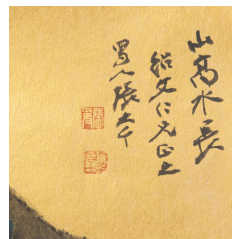 山高水長
紹文仁兄正之
蜀人張大千